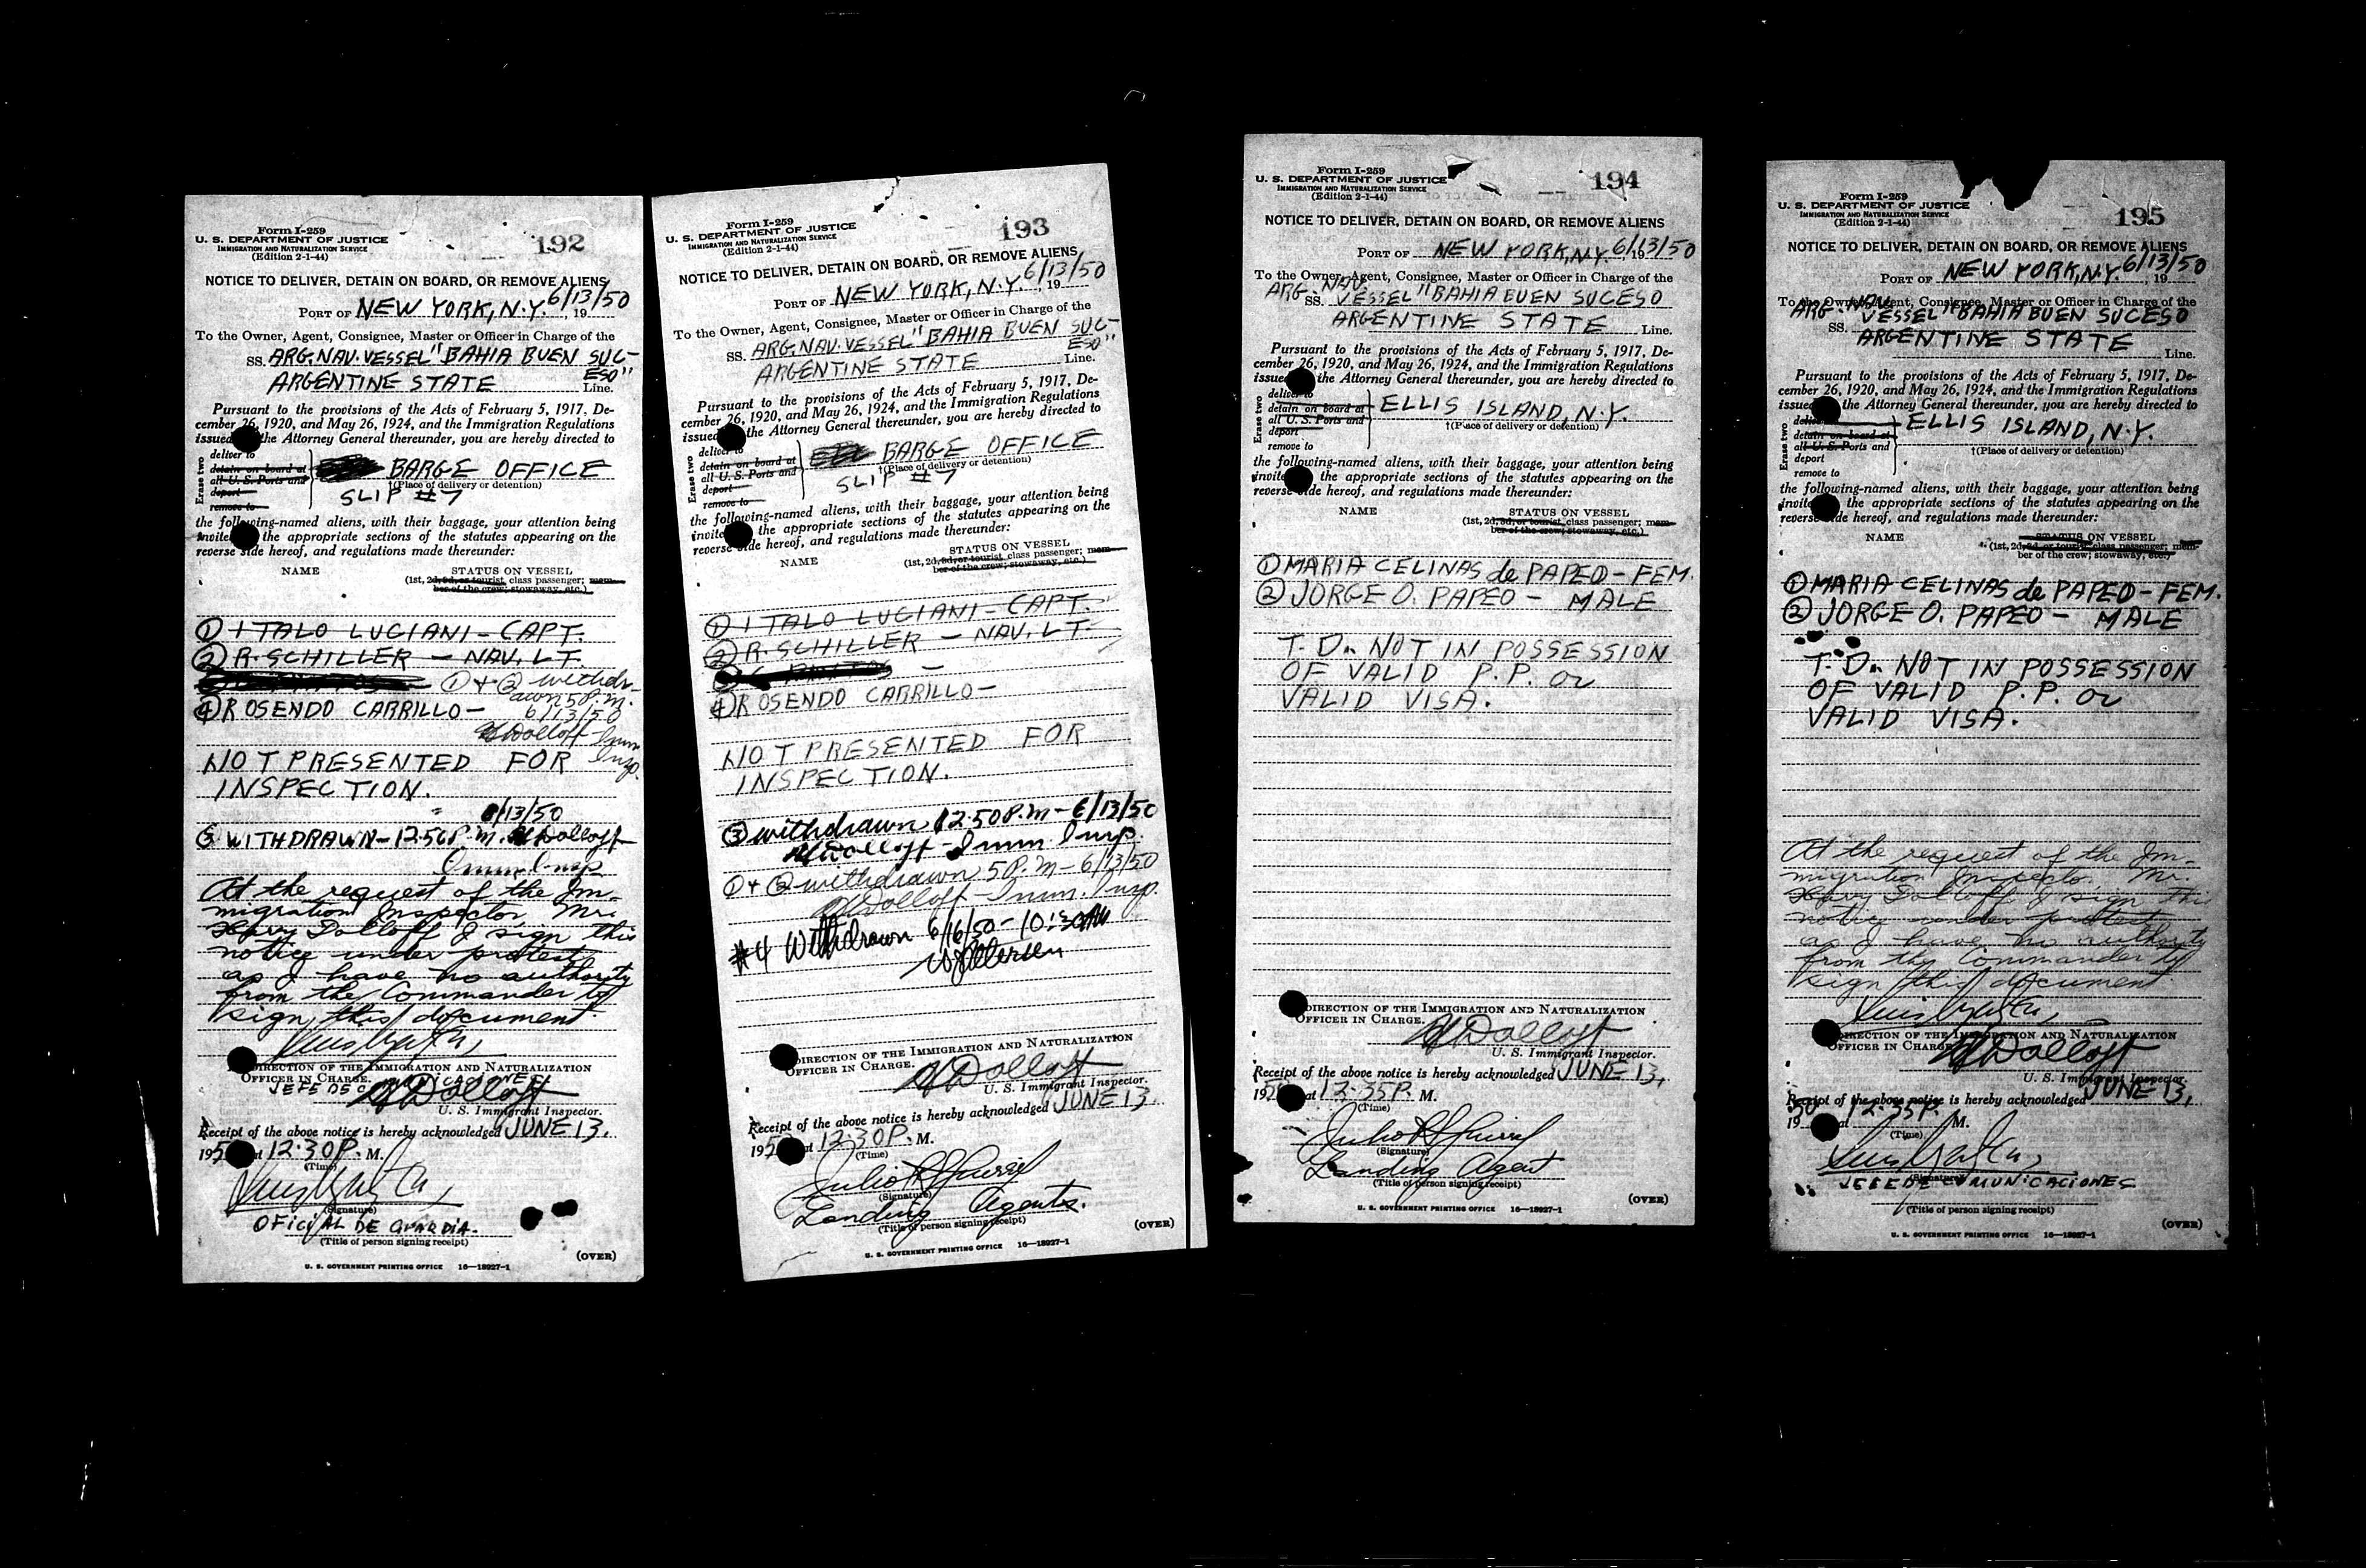 Form I-259
U. S. DEPARTMENT OF JUSTICE
IMMIGRATION AND NATURALIZATION SERVICE
(Edition 2-1-44)
192
NOTICE TO DELIVER, DETAIN ON BOARD, OR REMOVE ALIENS
PORT OF NEW YORK, N.Y. 6/13/50, 19
To the Owner, Agent, Consignee, Master or Officer in Charge of the
SS. ARG. NAV. VESSEL "BAHIA BUEN SUC-
ESO"
ARGENTINE STATE Line.
Pursuant to the provisions of the Acts of February 5, 1917, De-
cember 26, 1920, and May 26, 1924, and the Immigration Regulations
issued the Attorney General thereunder, you are hereby directed to
Erase two
deliver to
detain on board at
all U. S. Ports and
deport
remove to
BARGE OFFICE
†(Place of delivery or detention)
SLIP #7
the following-named aliens, with their baggage, your attention being
invite the appropriate sections of the statutes appearing on the
reverse side hereof, and regulations made thereunder:
NAME STATUS ON VESSEL
(1st, 2d, 3d, or tourist class passenger; mem-
ber of the crew; stowaway, etc.)
① ITALO LUCIANI - CAPT.
② R. SCHILLER - NAV. LT.
① + ② withdr-
awn 5 P.m.
④ ROSENDO CARRILLO - 6/13/50
HDolloff Imm
Insp.
NOT PRESENTED FOR
INSPECTION.
6/13/50
③ WITHDRAWN - 12:50 P.M. HDolloff
Imm Insp
At the request of the Im-
migration Inspector, Mr.
Harry Dolloff I sign this
notice under protest
as I have no authority
from the Commander to
sign this document
DIRECTION OF THE IMMIGRATION AND NATURALIZATION
OFFICER IN CHARGE.
HDolloff
U. S. Immigrant Inspector.
Receipt of the above notice is hereby acknowledged JUNE 13,
195 at 12:30 P. M.
(Time)
(Signature)
OFICIAL DE GUARDIA.
(Title of person signing receipt)
(OVER)
U. S. GOVERNMENT PRINTING OFFICE 16—18927-1
Form I-259
U. S. DEPARTMENT OF JUSTICE
IMMIGRATION AND NATURALIZATION SERVICE
(Edition 2-1-44)
193
NOTICE TO DELIVER, DETAIN ON BOARD, OR REMOVE ALIENS
PORT OF NEW YORK, N.Y. 6/13/50, 19
To the Owner, Agent, Consignee, Master or Officer in Charge of the
SS. ARG. NAV. VESSEL "BAHIA BUEN SUC-
ESO"
ARGENTINE STATE Line.
Pursuant to the provisions of the Acts of February 5, 1917, De-
cember 26, 1920, and May 26, 1924, and the Immigration Regulations
issued the Attorney General thereunder, you are hereby directed to
Erase two
deliver to
detain on board at
all U. S. Ports and
deport
remove to
BARGE OFFICE
†(Place of delivery or detention)
SLIP #7
the following-named aliens, with their baggage, your attention being
invite the appropriate sections of the statutes appearing on the
reverse side hereof, and regulations made thereunder:
NAME STATUS ON VESSEL
(1st, 2d, 3d, or tourist class passenger; mem-
ber of the crew; stowaway, etc.)
① ITALO LUCIANI - CAPT.
② R. SCHILLER - NAV. LT.
④ ROSENDO CARRILLO -
NOT PRESENTED FOR
INSPECTION.
③ withdrawn 12:50 P.m - 6/13/50
HDolloff - Imm. Insp.
① + ② withdrawn 5 P.m - 6/13/50
HDolloff - Imm. Insp.
#4 Withdrawn 6/16/50 - 10:30 AM
DIRECTION OF THE IMMIGRATION AND NATURALIZATION
OFFICER IN CHARGE.
HDolloff
U. S. Immigrant Inspector.
Receipt of the above notice is hereby acknowledged JUNE 13,
195 at 12:30 P. M.
(Time)
(Signature)
Landing Agents.
(Title of person signing receipt)
(OVER)
U. S. GOVERNMENT PRINTING OFFICE 16—18927-1
Form I-259
U. S. DEPARTMENT OF JUSTICE
IMMIGRATION AND NATURALIZATION SERVICE
(Edition 2-1-44)
194
NOTICE TO DELIVER, DETAIN ON BOARD, OR REMOVE ALIENS
PORT OF NEW YORK, N.Y. 6/13/50, 19
To the Owner, Agent, Consignee, Master or Officer in Charge of the
ARG. NAV.
SS. VESSEL "BAHIA BUEN SUCESO
ARGENTINE STATE Line.
Pursuant to the provisions of the Acts of February 5, 1917, De-
cember 26, 1920, and May 26, 1924, and the Immigration Regulations
issued the Attorney General thereunder, you are hereby directed to
Erase two
deliver to
detain on board at
all U. S. Ports and
deport
remove to
ELLIS ISLAND, N.Y.
†(Place of delivery or detention)
the following-named aliens, with their baggage, your attention being
invite the appropriate sections of the statutes appearing on the
reverse side hereof, and regulations made thereunder:
NAME STATUS ON VESSEL
(1st, 2d, 3d, or tourist class passenger; mem-
ber of the crew; stowaway, etc.)
① MARIA CELINAS de PAPEO - FEM.
② JORGE O. PAPEO - MALE
T. D. NOT IN POSSESSION
OF VALID P.P. or
VALID VISA.
DIRECTION OF THE IMMIGRATION AND NATURALIZATION
OFFICER IN CHARGE.
HDolloff
U. S. Immigrant Inspector.
Receipt of the above notice is hereby acknowledged JUNE 13,
195 at 12:35 P. M.
(Time)
(Signature)
Landing Agent
(Title of person signing receipt)
(OVER)
U. S. GOVERNMENT PRINTING OFFICE 16—18927-1
Form I-259
U. S. DEPARTMENT OF JUSTICE
IMMIGRATION AND NATURALIZATION SERVICE
(Edition 2-1-44)
195
NOTICE TO DELIVER, DETAIN ON BOARD, OR REMOVE ALIENS
PORT OF NEW YORK, N.Y. 6/13/50, 19
To the Owner, Agent, Consignee, Master or Officer in Charge of the
ARG. NAV.
SS. VESSEL "BAHIA BUEN SUCESO
ARGENTINE STATE Line.
Pursuant to the provisions of the Acts of February 5, 1917, De-
cember 26, 1920, and May 26, 1924, and the Immigration Regulations
issued the Attorney General thereunder, you are hereby directed to
Erase two
deliver
detain on board at
all U. S. Ports and
deport
remove to
ELLIS ISLAND, N.Y.
†(Place of delivery or detention)
the following-named aliens, with their baggage, your attention being
invite the appropriate sections of the statutes appearing on the
reverse side hereof, and regulations made thereunder:
NAME STATUS ON VESSEL
(1st, 2d, 3d, or tourist class passenger; mem-
ber of the crew; stowaway, etc.)
① MARIA CELINAS de PAPEO - FEM.
② JORGE O. PAPEO - MALE
T. D. NOT IN POSSESSION
OF VALID P.P. or
VALID VISA.
At the request of the Im-
migration Inspector, Mr.
Harry Dolloff I sign this
notice under protest
as I have no authority
from the Commander to
sign this document
DIRECTION OF THE IMMIGRATION AND NATURALIZATION
OFFICER IN CHARGE.
HDolloff
U. S. Immigrant Inspector.
Receipt of the above notice is hereby acknowledged JUNE 13,
1950 at 12:35 P. M.
(Time)
(Signature)
JEFE DE COMUNICACIONES
(Title of person signing receipt)
(OVER)
U. S. GOVERNMENT PRINTING OFFICE 16—18927-1